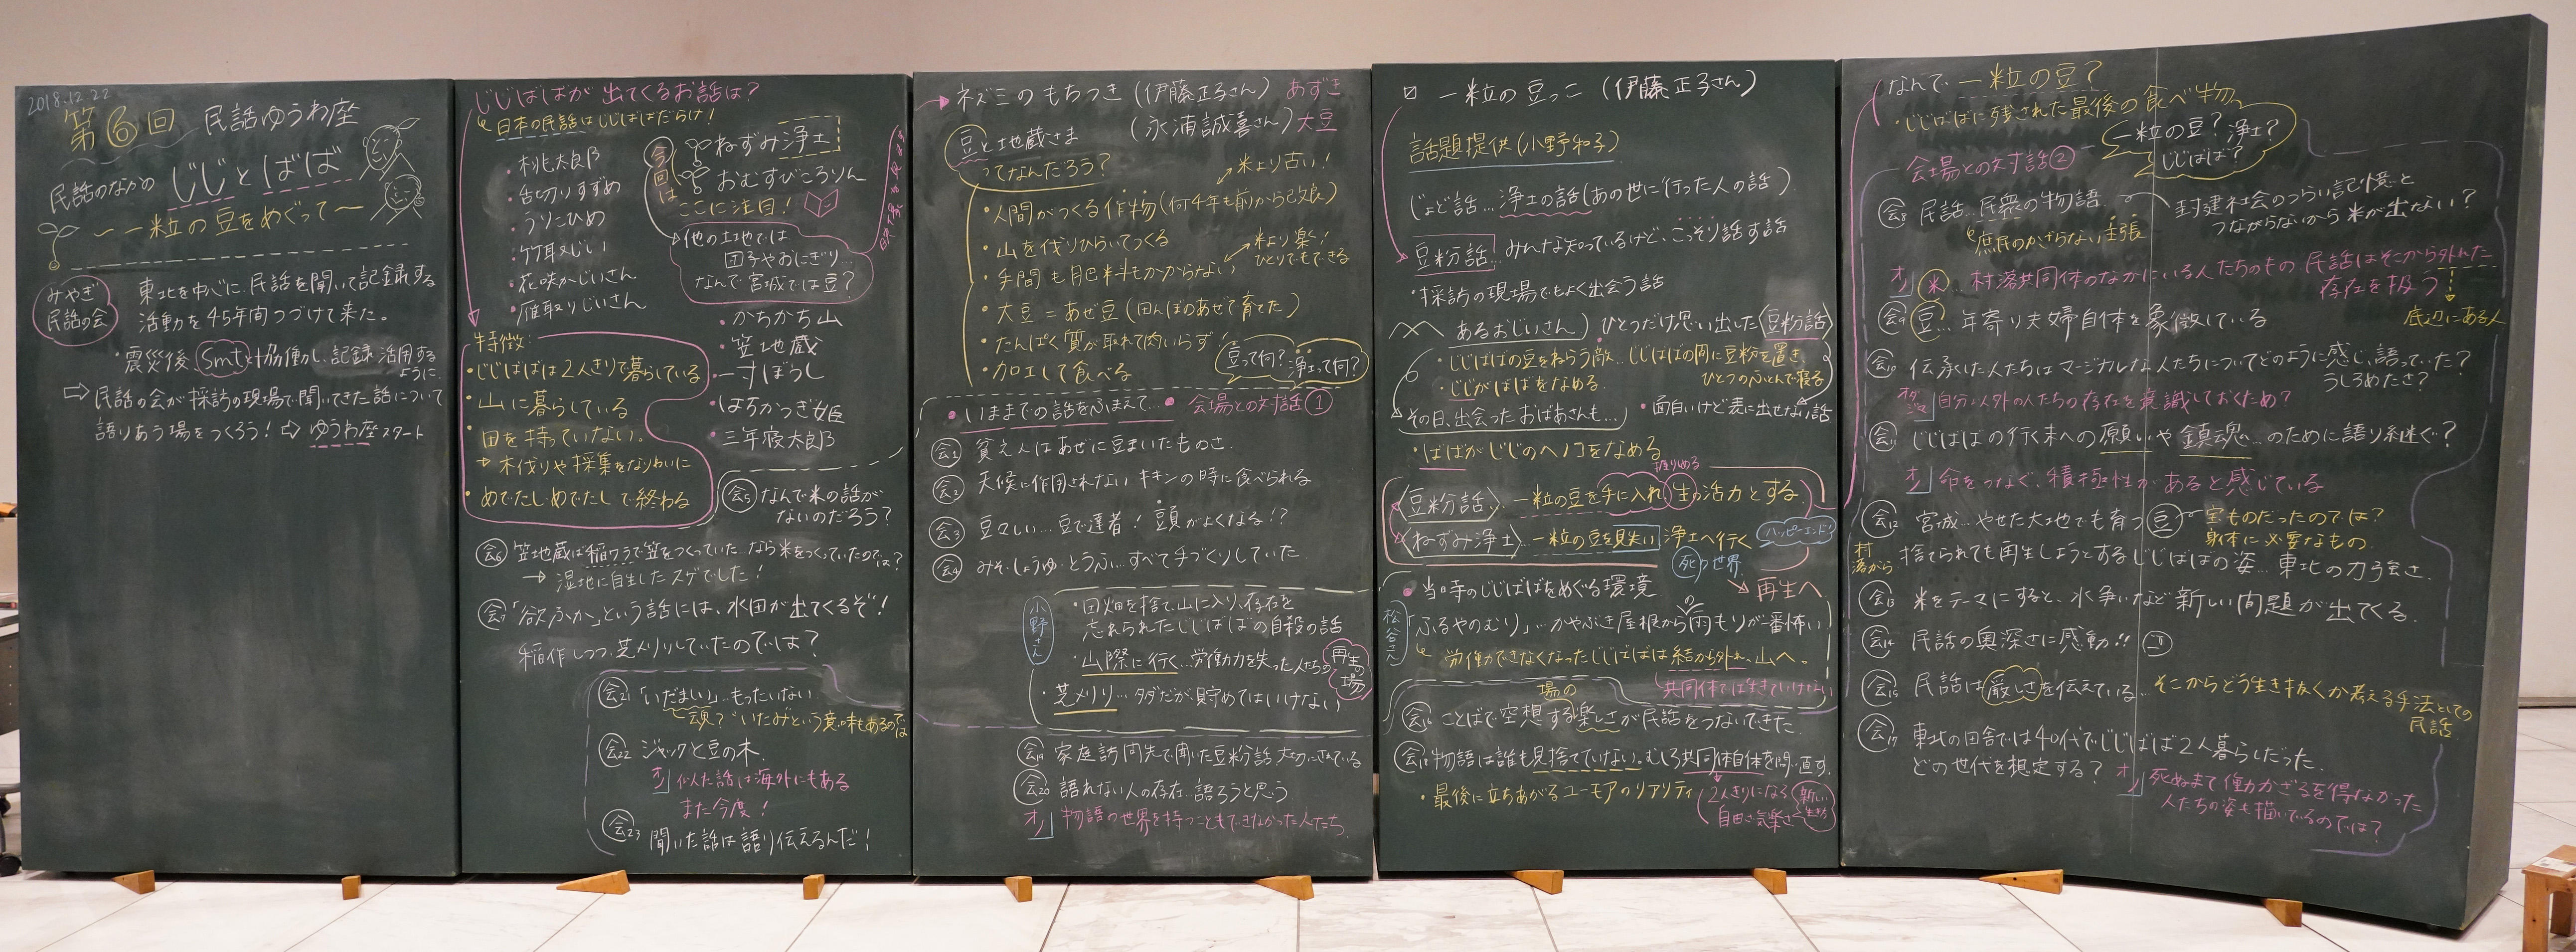 2018.12.22
第6回 民話ゆうわ座
民話のなかの じじとばば
〜一粒の豆をめぐって〜
みやぎ民話の会
東北を中心に民話を聞いて記録する
活動を45年間つづけて来た。
・震災後、smtと協働し、記録・活用する
ように
⇨民話の会が採訪の現場で聞いてきた話について
語りあう場をつくろう！⇨ゆうわ座スタート
じじばばが出てくるお話は？
日本の民話はじじばばだらけ！
・桃太郎
・舌切りすずめ
・うりこひめ
・竹取じじい
・花咲かじいさん
・雁取りじいさん
今回は
ねずみ浄土
おむすびころりん
ここに注目！
他の土地では
団子やおにぎり…
なんで宮城では豆？
・かちかち山
・笠地蔵
・一寸ぼうし
・はちかつぎ姫
・三年寝太郎
特徴：
・じじばばは2人きりで暮らしている
・山に暮らしている
・田を持っていない。
→木伐りや採集をなりわいに
・めでたしめでたしで終わる
会5 なんで米の話が
ないのだろう？
会6 笠地蔵は稲ワラで笠をつくっていた…なら米をつくっていたのでは？
→湿地に自生したスゲでした！
会7「欲ふか」という話には、水田が出てくるぞ！
稲作しつつ、芝刈りしていたのでは？
会21「いだましい」…もったいない
魂？いたみという意味もあるのでは
会22 ジャックと豆の木
オノ 似た話は海外にもある
また今度！
会23 聞いた話は語り伝えるんだ！
ネズミのもちつき（伊藤正子さん）あずき
（永浦誠喜さん）大豆
豆と地蔵さま
ってなんだろう？
米より古い！
・人間がつくる作物（何千年も前から己娘）
・山を伐りひらいてつくる
・手間も肥料もかからない
米より楽！
ひとりでもできる
・大豆＝あぜ豆（田んぼのあぜで育てた）
・たんぱく質が取れて肉いらず！
・加工して食べる
豆って何？浄土って何？
・いままでの話をふまえて…・会場との対話①
会1 貧乏人はあぜに豆まいたものさ。
会2 天候に作用されない キキンの時に食べられる
会3 豆々しい…豆で達者！頭がよくなる！？
会4 みそ・しょうゆ・とうふ…すべて手づくりしていた
小野さん
・田畑を捨て、山に入り、存在を
忘れられたじじばばの自殺の話
・山際に行く…労働力を失った人たちの再生の場
・芝刈り…タダだが貯めてはいけない
会19 家庭訪問先で聞いた豆粉話 大切にされている
会20 語れない人の存在…語ろうと思う
オノ 物語の世界を持つこともできなかった人たち
一粒の豆っこ（伊藤正子さん）
話題提供（小野和子）
じょど話…浄土の話（あの世に行った人の話）
豆粉話…みんな知っているけど、こっそり話す話
・採訪の現場でもよく出会う話
あるおじいさん ひとつだけ思い出した豆粉話
・じじばばの豆をねらう敵…じじばばの間に豆粉を置き、
ひとつのふとんで寝る
・じじがばばをなめる。
その日、出会ったおばあさんも…
・面白いけど表に出せない話
・ばばがじじのヘノコをなめる
握りしめる
豆粉話 一粒の豆を手に入れ、生の活力とする
ねずみ浄土 一粒の豆を見失い 浄土へ行く ハッピーエンド
死の世界
→再生へ
・当時のじじばばをめぐる環境
松谷さん
「ふるやのむり」…かやぶき屋根からの雨もりが一番怖い
労働できなくなったじじばばは結から外れ、山へ。
共同体では生きていけない
会16 ことばで空想する場の楽しさが民話をつないできた
会18 物語は誰も見捨てていけない。むしろ共同体自体を問い直す。
・最後に立ちあがるユーモアのリアリティ
2人きりになる
自由さ・気楽さ
新しい生き方
なんで、一粒の豆？
・じじばばに残された最後の食べ物
一粒の豆？浄土？
じじばば？
会場との対話②
会8 民話…民衆の物語
庶民のかざらない主張
封建社会のつらい記憶と
つながらないから米が出ない？
オノ 米…村落共同体のなかにいる人たちのもの 民話はそこから外れた
存在を扱う
底辺にある人
会9 豆…年寄り夫婦自体を象徴している
会10 伝承した人たちはマージナルな人たちについてどのように感じ、語っていた？
うしろめたさ？
自分以外の人たちの存在を意識しておくため？
会11 じじばばの行く末への願いや鎮魂…のために語り継ぐ？
オノ 命をつなぐ、積極性があると感じている
会12 宮城…やせた大地でも育つ豆
宝ものだったのでは？
身体に必要なもの
村落から捨てられても再生しようとするじじばばの姿…東北の力強さ。
会13 米をテーマにすると、水争いなど新しい問題が出てくる。
会14 民話の奥深さに感動!!
会15 民話は厳しさを伝えている…そこからどう生き抜くか考える手法としての
民話
会17 東北の田舎では40代でじじばば2人暮らしだった。
どの世代を想定する？
オノ 死ぬまで働かざるを得なかった
人たちの姿を描いているのでは？